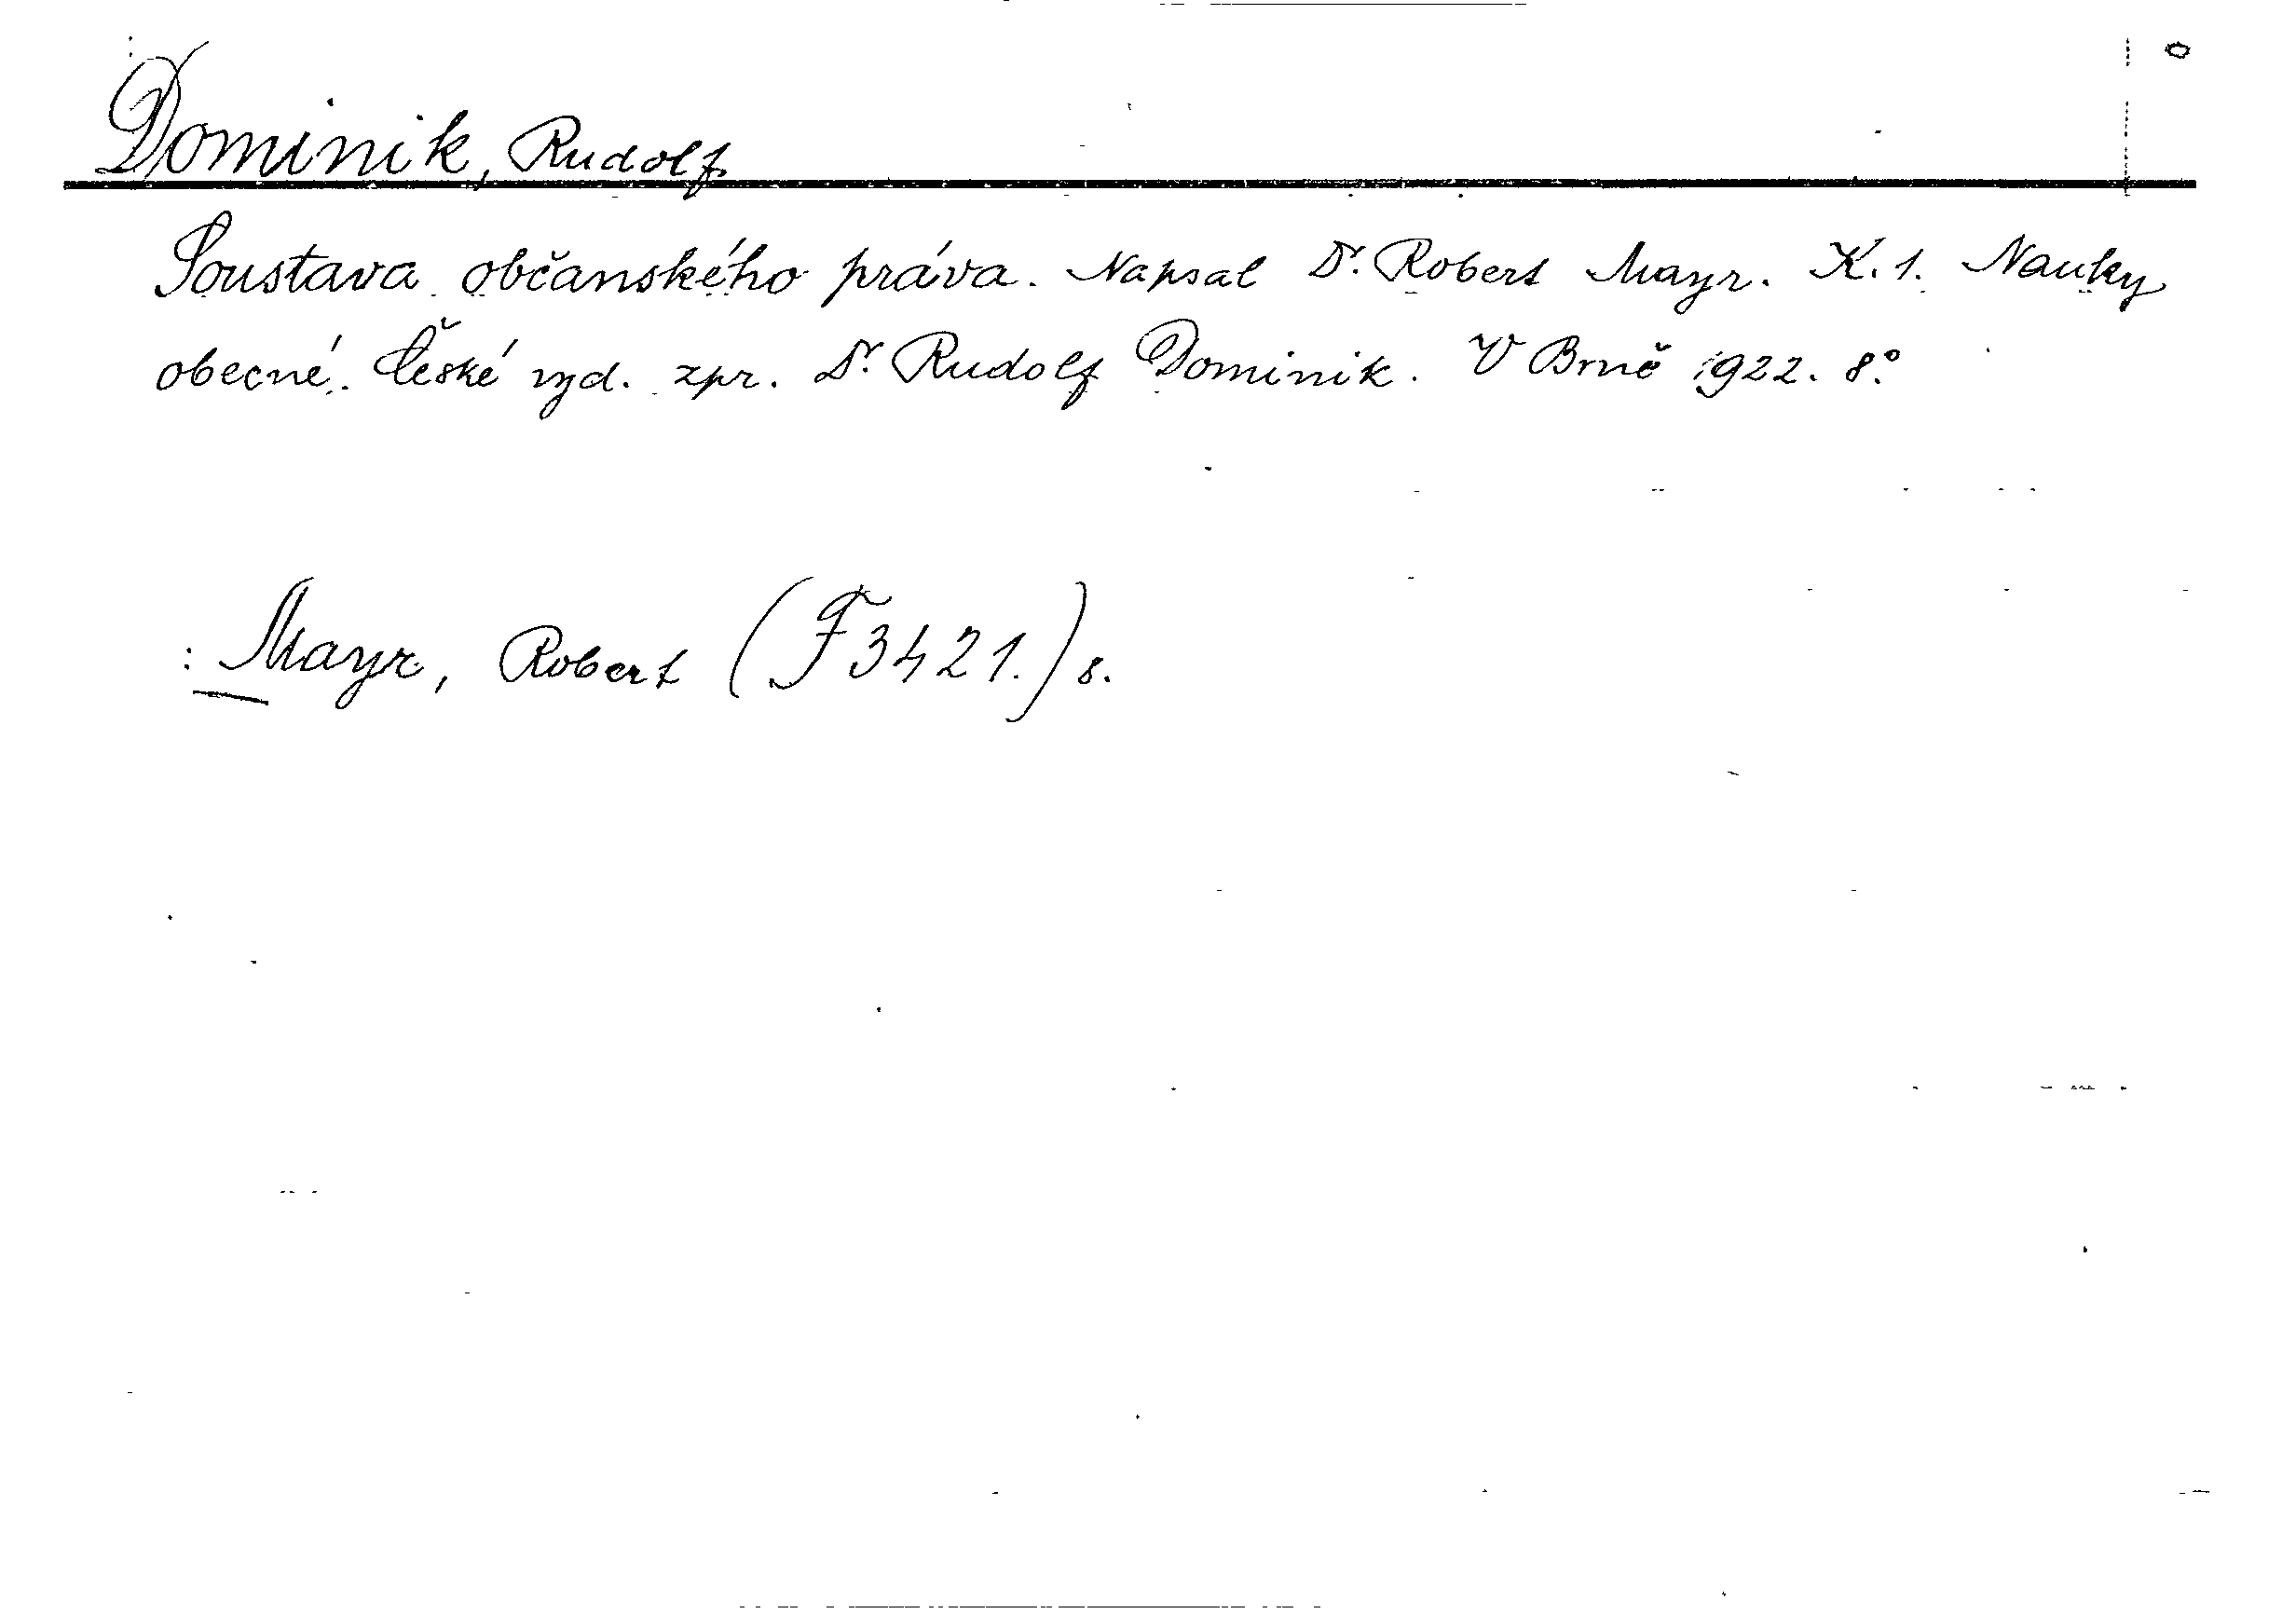 Dominik, Rudolf.
Soustava občanského práva. Napsal Dr. Robert Mayr. K. 1. Nauky
obecné. České vyd. zpr. Dr. Rudolf Dominik. V Brně 1922. 8.°
: Mayr, Robert (F 3421.) 8.